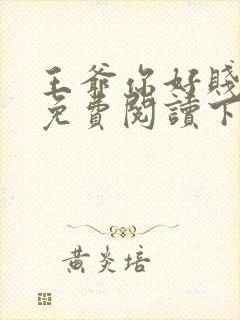 王爺你好賤
免費閱讀下
黃炎培